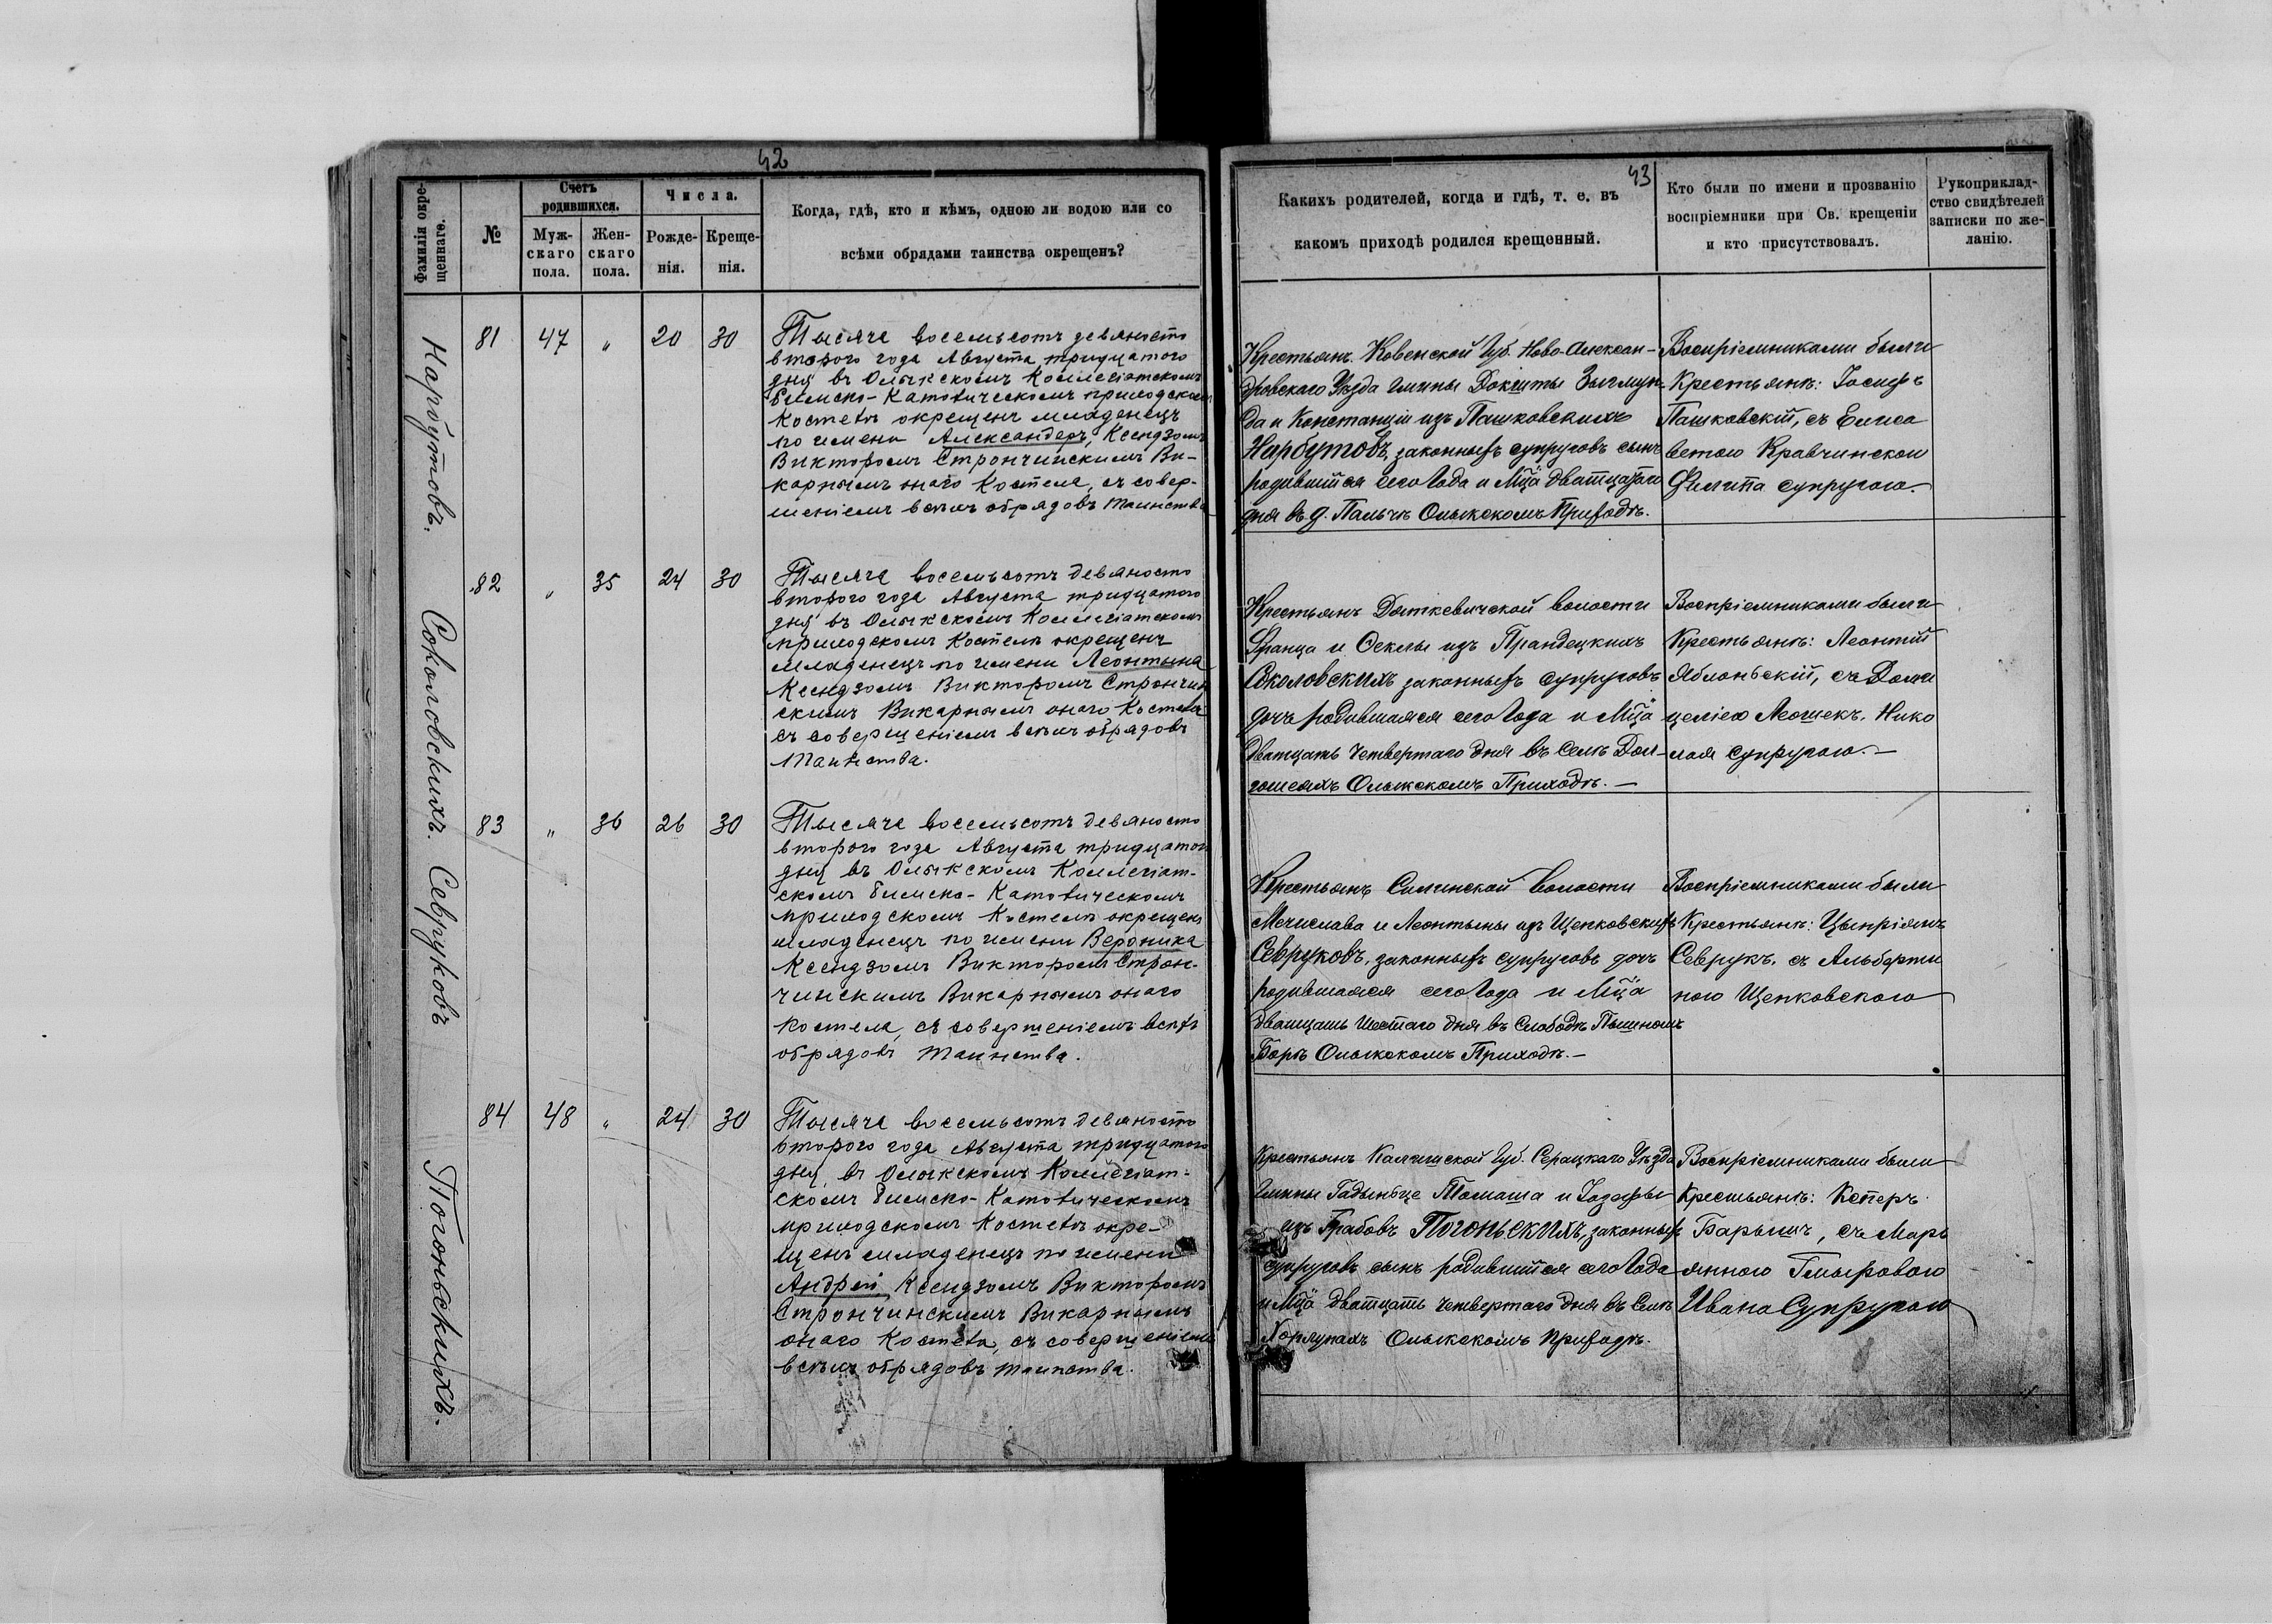 42
Фамилія окре-
щеннаго.
№
Счетъ
родившихся.
Муж-
скаго
пола.
Жен-
скаго
пола.
Числа.
Рожде-
нія.
Креще-
нія.
Когда, гдѣ, кто и кѣмъ, одною ли водою или со
всѣми обрядами таинства окрещенъ?
Нарбутовъ.
81
47
"
20
30
Тысяча восемьсотъ девяносто
второго года Августа тридцатого
дня въ Олыкскомъ Коллегіатскомъ
Римско-Католическомъ приходскомъ
Костелѣ окрещенъ младенецъ
по имени Александеръ, Ксендзомъ
Викторомъ Строньчинскимъ Ви-
карнымъ онаго Костела, съ совер-
шеніемъ всѣхъ обрядовъ Таинства
Соколовскихъ.
82
"
35
24
30
Тысяча восемьсотъ девяносто
второго года Августа тридцатого
дня въ Олыкскомъ Коллегіатскомъ
приходскомъ Костелѣ окрещенъ
младенецъ по имени Леонтына
Ксендзомъ Викторомъ Строньчин
скимъ Викарнымъ онаго Костела
съ совершеніемъ всѣхъ обрядовъ
Таинства.
Севруковъ
83
"
36
26
30
Тысяча восемьсотъ девяносто
второго года Августа тридцатого
дня въ Олыкскомъ Коллегіат-
скомъ Римско-Католическомъ
приходскомъ Костелѣ окрещенъ
младенецъ по имени Вероника
Ксендзомъ Викторомъ Строн-
чинскимъ Викарнымъ онаго
Костела, съ совершеніемъ всѣхъ
обрядовъ Таинства.
Погоньскихъ.
84
48
"
24
30
Тысяча восемьсотъ девяносто
второго года Августа тридцатого
дня, въ Олыкскомъ Коллегіат-
скомъ Римско-Католическомъ
приходскомъ Костелѣ окре-
щенъ младенецъ по имени
Андрей, Ксендзомъ Викторомъ
Стрончинскимъ Викарнымъ
онаго Костела, съ совершеніемъ
всѣхъ обрядовъ таинства.
43
Какихъ родителей, когда и гдѣ, т. е. въ
какомъ приходѣ родился крещенный.
Кто были по имени и прозванію
воспріемники при Св. крещеніи
и кто присутствовалъ.
Рукоприклад-
ство свидѣтелей
записки по же-
ланію.
Крестьянъ Ковенской Губ. Ново-Алексан-
дровскаго Уѣзда гмины Докшты Зыгмун-
да и Констанціи изъ Пашковскихъ
Нарбутовъ, законныхъ супруговъ сынъ
родившійся сего Года и Мца дватцатого
дня въ д. Пальчѣ Олыкскомъ Приходѣ.
Воспріемниками были
Крестьянѣ: Іосифъ
Пашковскій, съ Елиса
ветою Кравчинскою
Филипа супругою.
Крестьянъ Дяткевичской волости
Франца и Феклы изъ Прандецкихъ
Соколовскихъ законныхъ супруговъ
дочь родившаяся сего Года и Мца
дватцать четвертаго дня въ Селѣ Дол-
гошеяхъ Олыкскомъ Приходѣ. —
Воспріемниками были
Крестьянѣ: Леонтій
Яблоньскій, съ Доми
целіею Леошекъ, Нико
лая супругою. —
Крестьянъ Силинской волости
Мечислава и Леонтыны изъ Щепковскихъ
Севруковъ, законныхъ супруговъ дочь
родившаяся сего Года и Мца
дватцать шестаго дня въ Слободѣ Пышномъ
Борѣ Олыкскомъ Приходѣ. —
Воспріемниками были
Крестьянѣ: Цыпріянъ
Севрукъ, съ Альберти
ною Щепковскою
Крестьянъ Калишской Губ. Серацкаго Уѣзда
гмины Томаша и Іозефы
изъ Грабовъ Погоньскихъ, законныхъ
супруговъ сынъ родившійся сего Года
и Мца дватцать четвертаго дня въ Селѣ
Хорлупахъ Олыкскомъ приходѣ.
Воспріемниками были
Крестьянѣ: Ксперъ
Барычъ, съ Марь
янною Гмыровою
Ивана Супругою